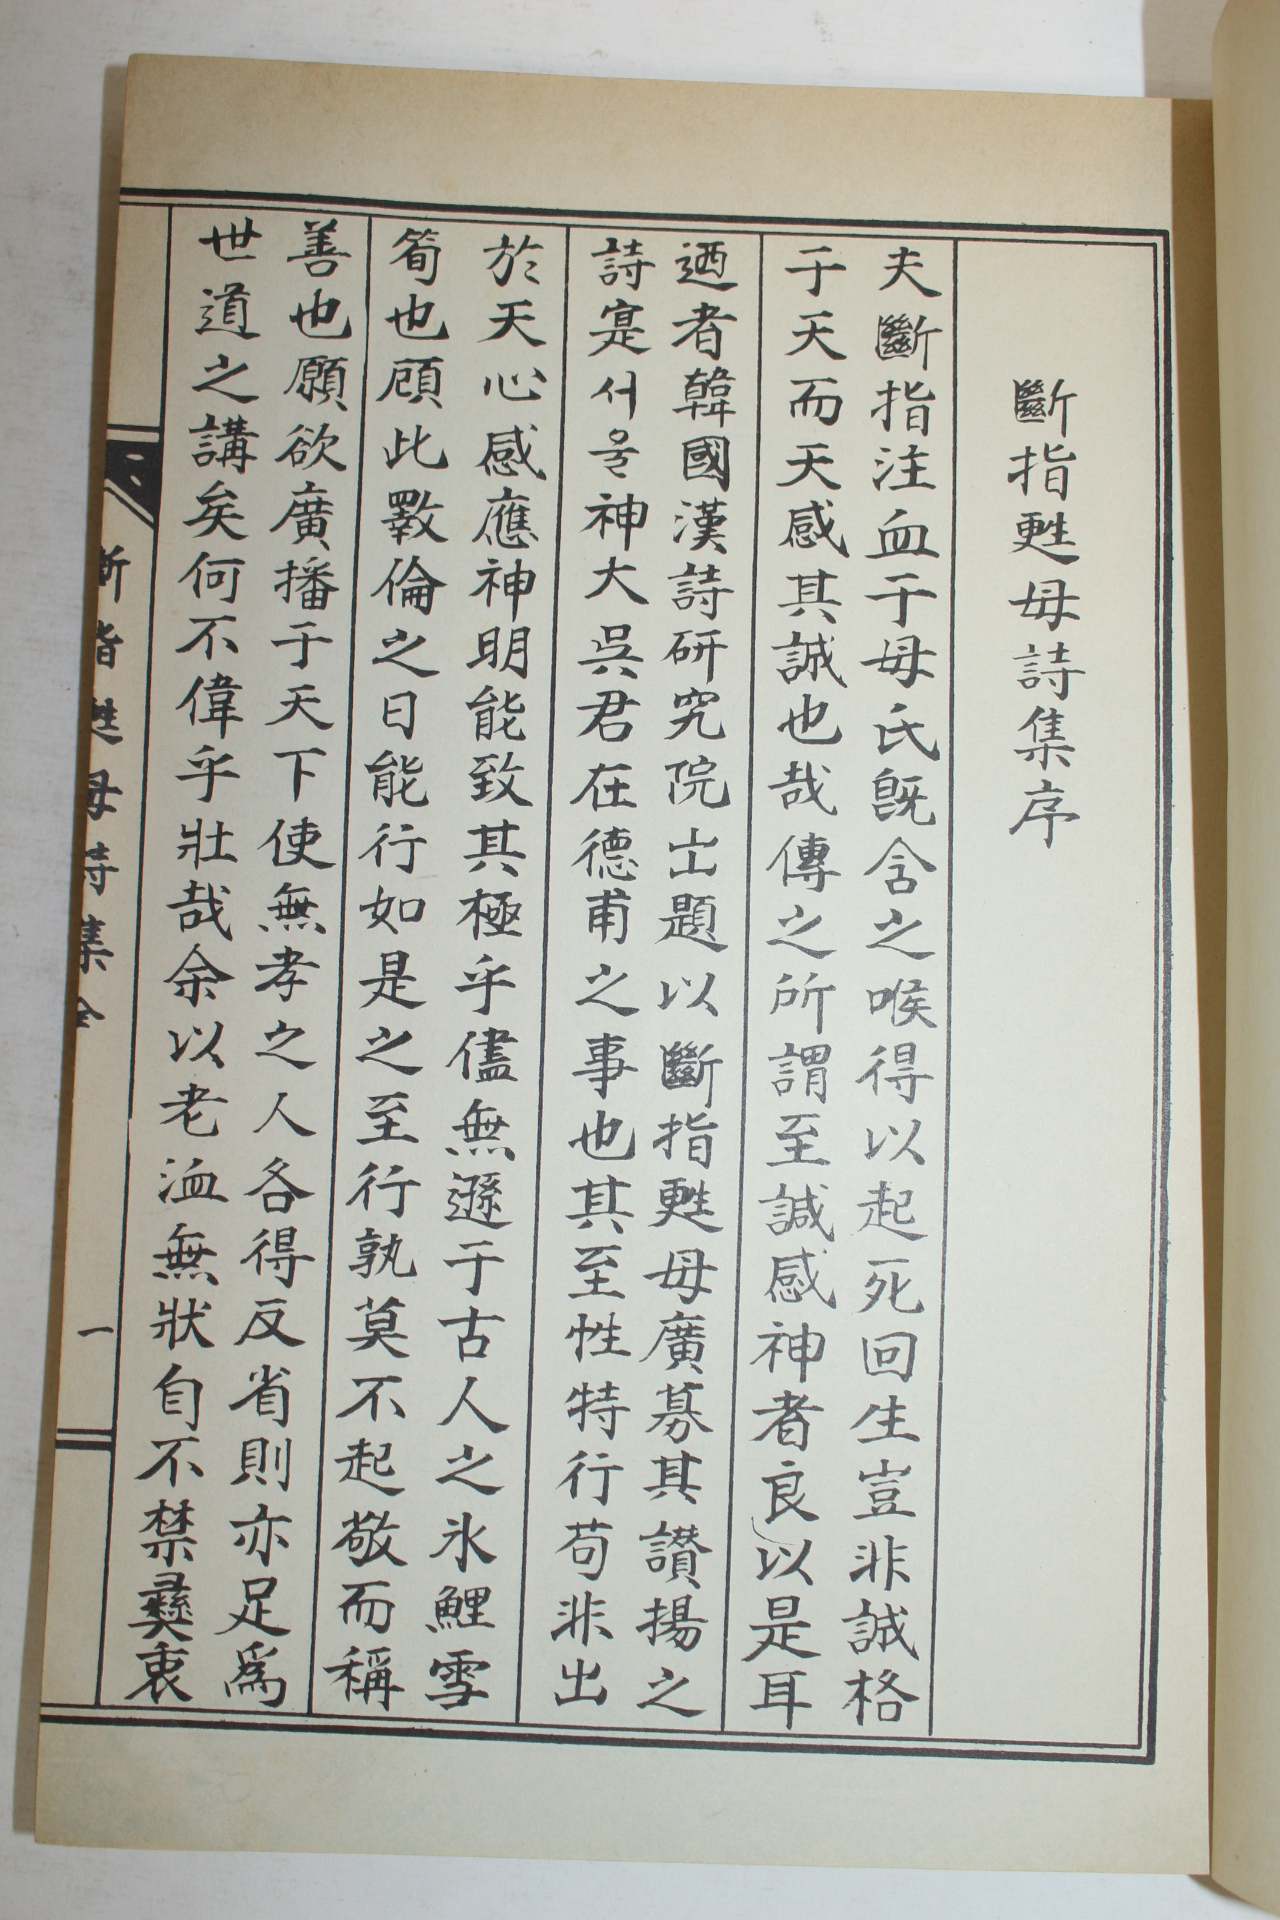 斷指甦母詩集序
夫斷指注血于母氏旣含之喉得以起死回生豈非誠格
于天而天感其誠也哉傳之所謂至諴感神者良以是耳
迺者韓國漢詩研究院出題以斷指甦母廣募其讃揚之
詩寔서울神大吳君在德甫之事也其至性特行苟非出
於天心感應神明能致其極乎儘無遜于古人之氷鯉雪
筍也顧此斁倫之日能行如是之至行孰莫不起敬而稱
善也願欲廣播于天下使無孝之人各得反省則亦足爲
世道之講矣何不偉乎壯哉余以老洫無狀自不禁彝衷
斷指甦母詩集全
一